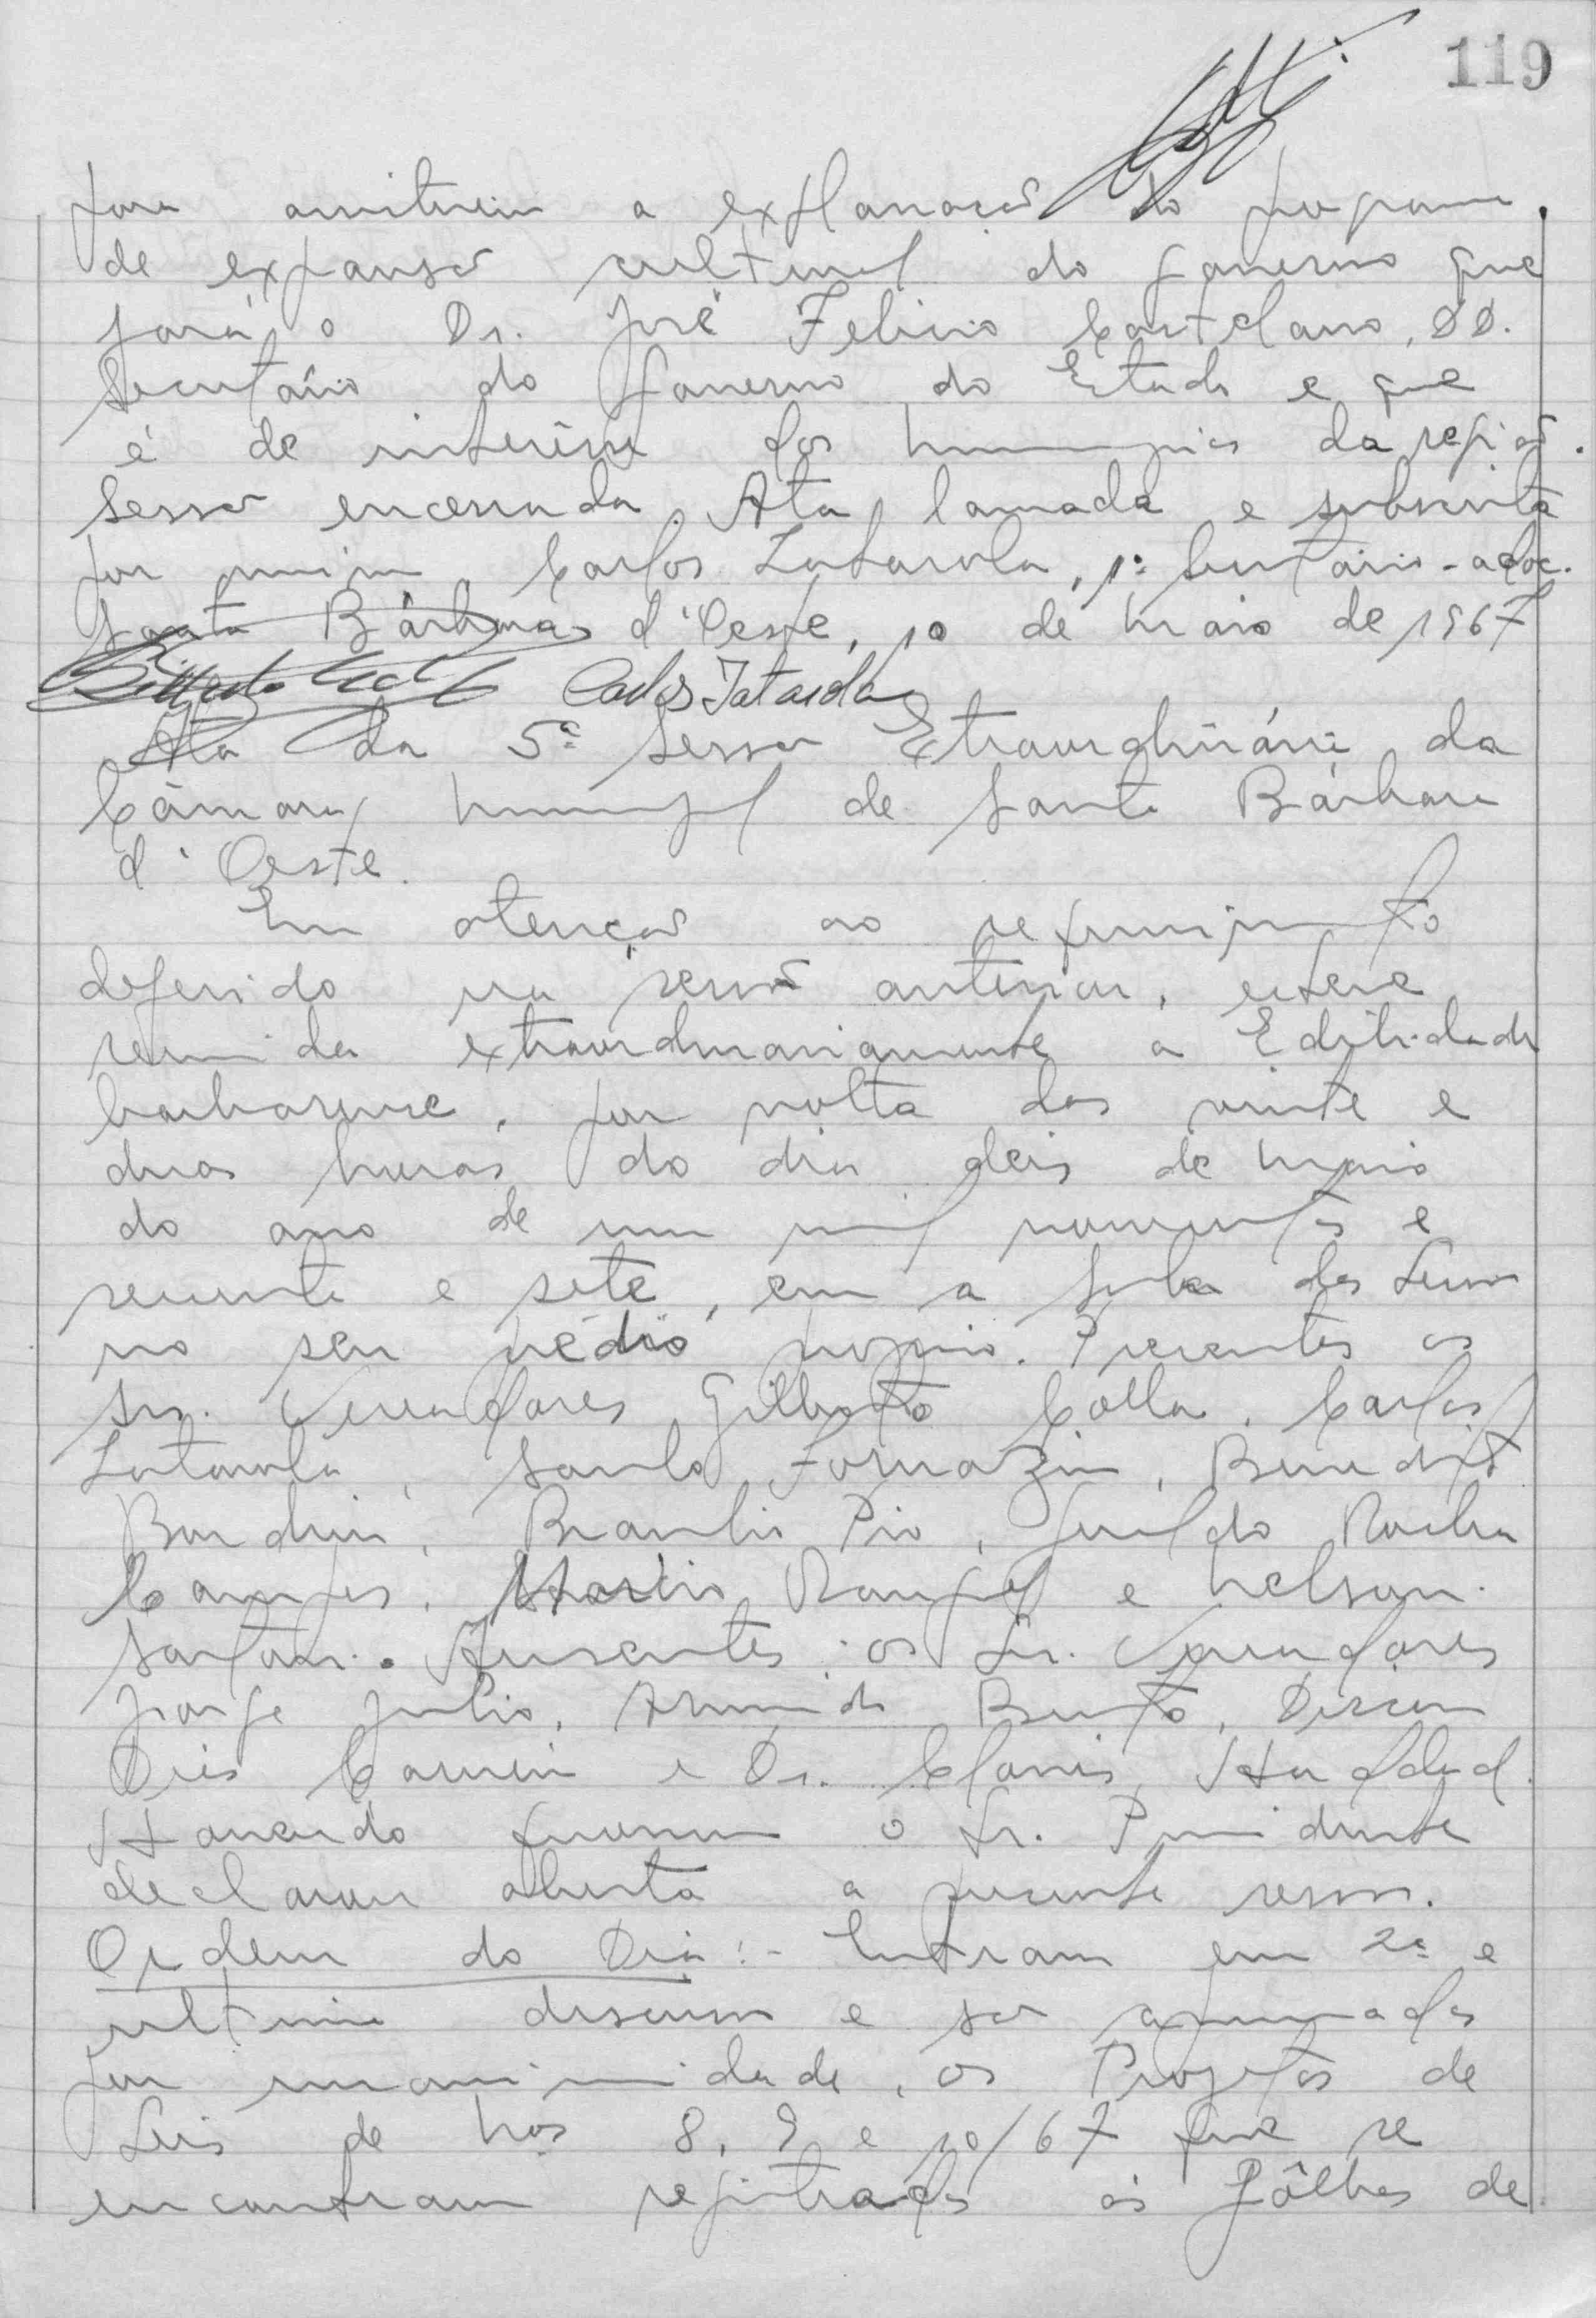 119
para assistirem a explanação do programa
de expansão cultural do governo que
fará o Dr. José Felicio Castelano, DD.
Secretário do Governo do Estado e que
é de interêsse dos municipios da região.
Sessão encerrada. Ata lavrada e subscrita
por mim, Carlos Zatarola, 1º Secretário-adoc.
Santa Bárbara d'Oeste, 10 de Maio de 1967
Carlos Zatarola
Ata da 5ª Sessão Extraordinária da
Câmara Municipal de Santa Bárbara
d'Oeste.
Em atenção ao requerimento
deferido na sessão anterior, esteve
reunida extraordinariamente a Edilidade
barbarense, por volta das vinte e
duas horas do dia deis de Maio
do ano de um mil novecentos e
sessenta e sete, em a Sala das Sessões
no seu prédio proprio. Presentes os
srs. Vereadores Gilberto Colla, Carlos
Zatarola, Santo Fornazin, Benedito
Bordini, Braulio Pio, Geraldo Rocha
Campos, Rangel e Nelson
Sartori. Ausentes: os Srs. Vereadores
Jorge Julio, Bento, Dirceu
Dias Carneiro e Dr. Clovis
Havendo quorum o Sr. Presidente
declarou aberta a presente sessão.
Ordem do Dia:- Entram em 2ª e
ultima discussão e são aprovados
por unanimidade, os Projetos de
Leis de Nos 8, 9 e 10/67 que se
encontram registrados às fôlhas de